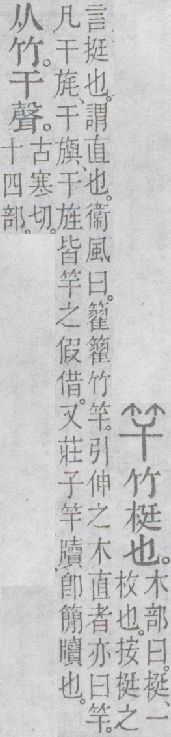 竿 竹梃也。
木部曰。梃、一
枚也。按梃之
言挺也。謂直也。衞風曰。籊籊竹竿。引伸之木直者亦曰竿。
凡干旄、干旟、干旌皆竿之假借。又莊子竿牘、卽簡牘也。
从竹。干聲。
古寒切。
十四部。